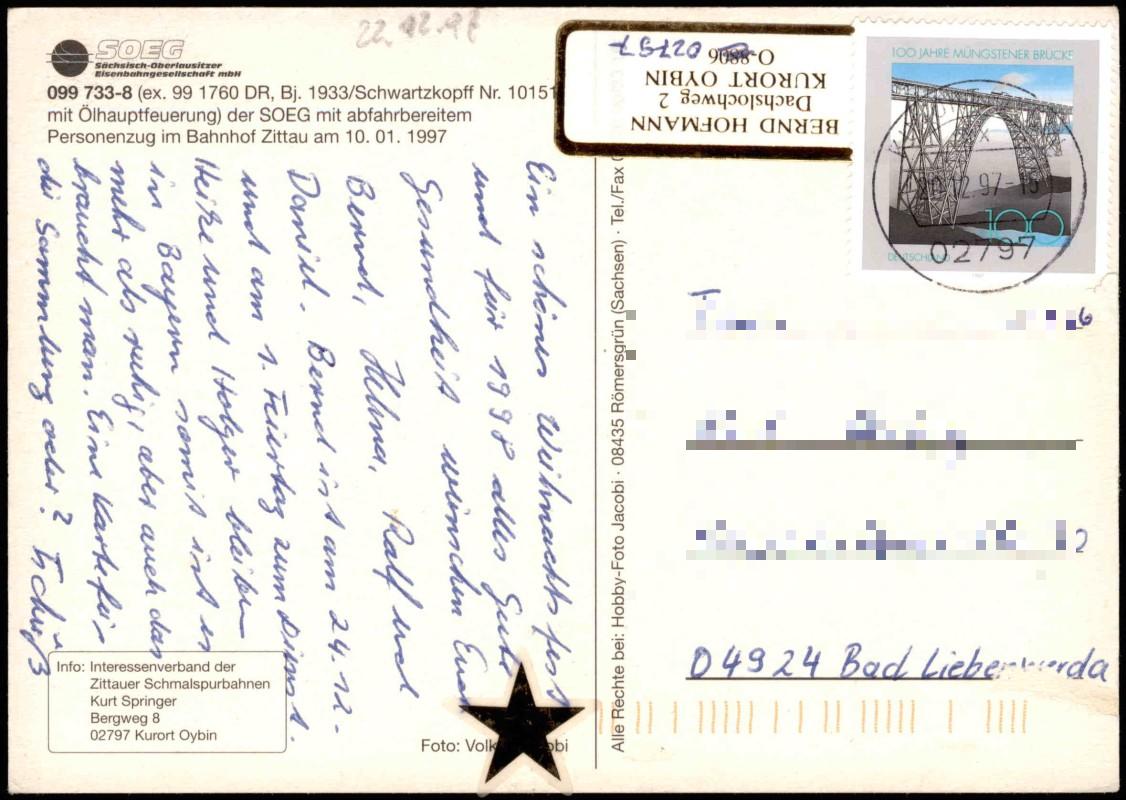 22.12.97
SOEG
Sächsisch-Oberlausitzer
Eisenbahngesellschaft mbH
099 733-8 (ex. 99 1760 DR, Bj. 1933/Schwartzkopff Nr. 10151
mit Ölhauptfeuerung) der SOEG mit abfahrbereitem
Personenzug im Bahnhof Zittau am 10. 01. 1997
Ein schönes Weihnachtsfest
und für 1998 alles Gute
Gesundheit wünschen Euch
Bernd, Helma, Ralf und
Daniel. Bernd ist am 24.12.
und am 1. Feiertag zum Dienst.
Heike und Holger bleiben
in Bayern somit ist es
mehr als ruhig, aber auch das
braucht man. Eine Karte für
die Sammlung oder?
Info: Interessenverband der
Zittauer Schmalspurbahnen
Kurt Springer
Bergweg 8
02797 Kurort Oybin
Foto:
Alle Rechte bei: Hobby-Foto Jacobi · 08435 Römersgrün (Sachsen) · Tel./Fax
BERND HOFMANN
Dachslochweg 2
KURORT OYBIN
O-8806 02797
100 JAHRE MÜNGSTENER BRÜCKE
100
DEUTSCHLAND
02797
D 4924 Bad Liebenwerda